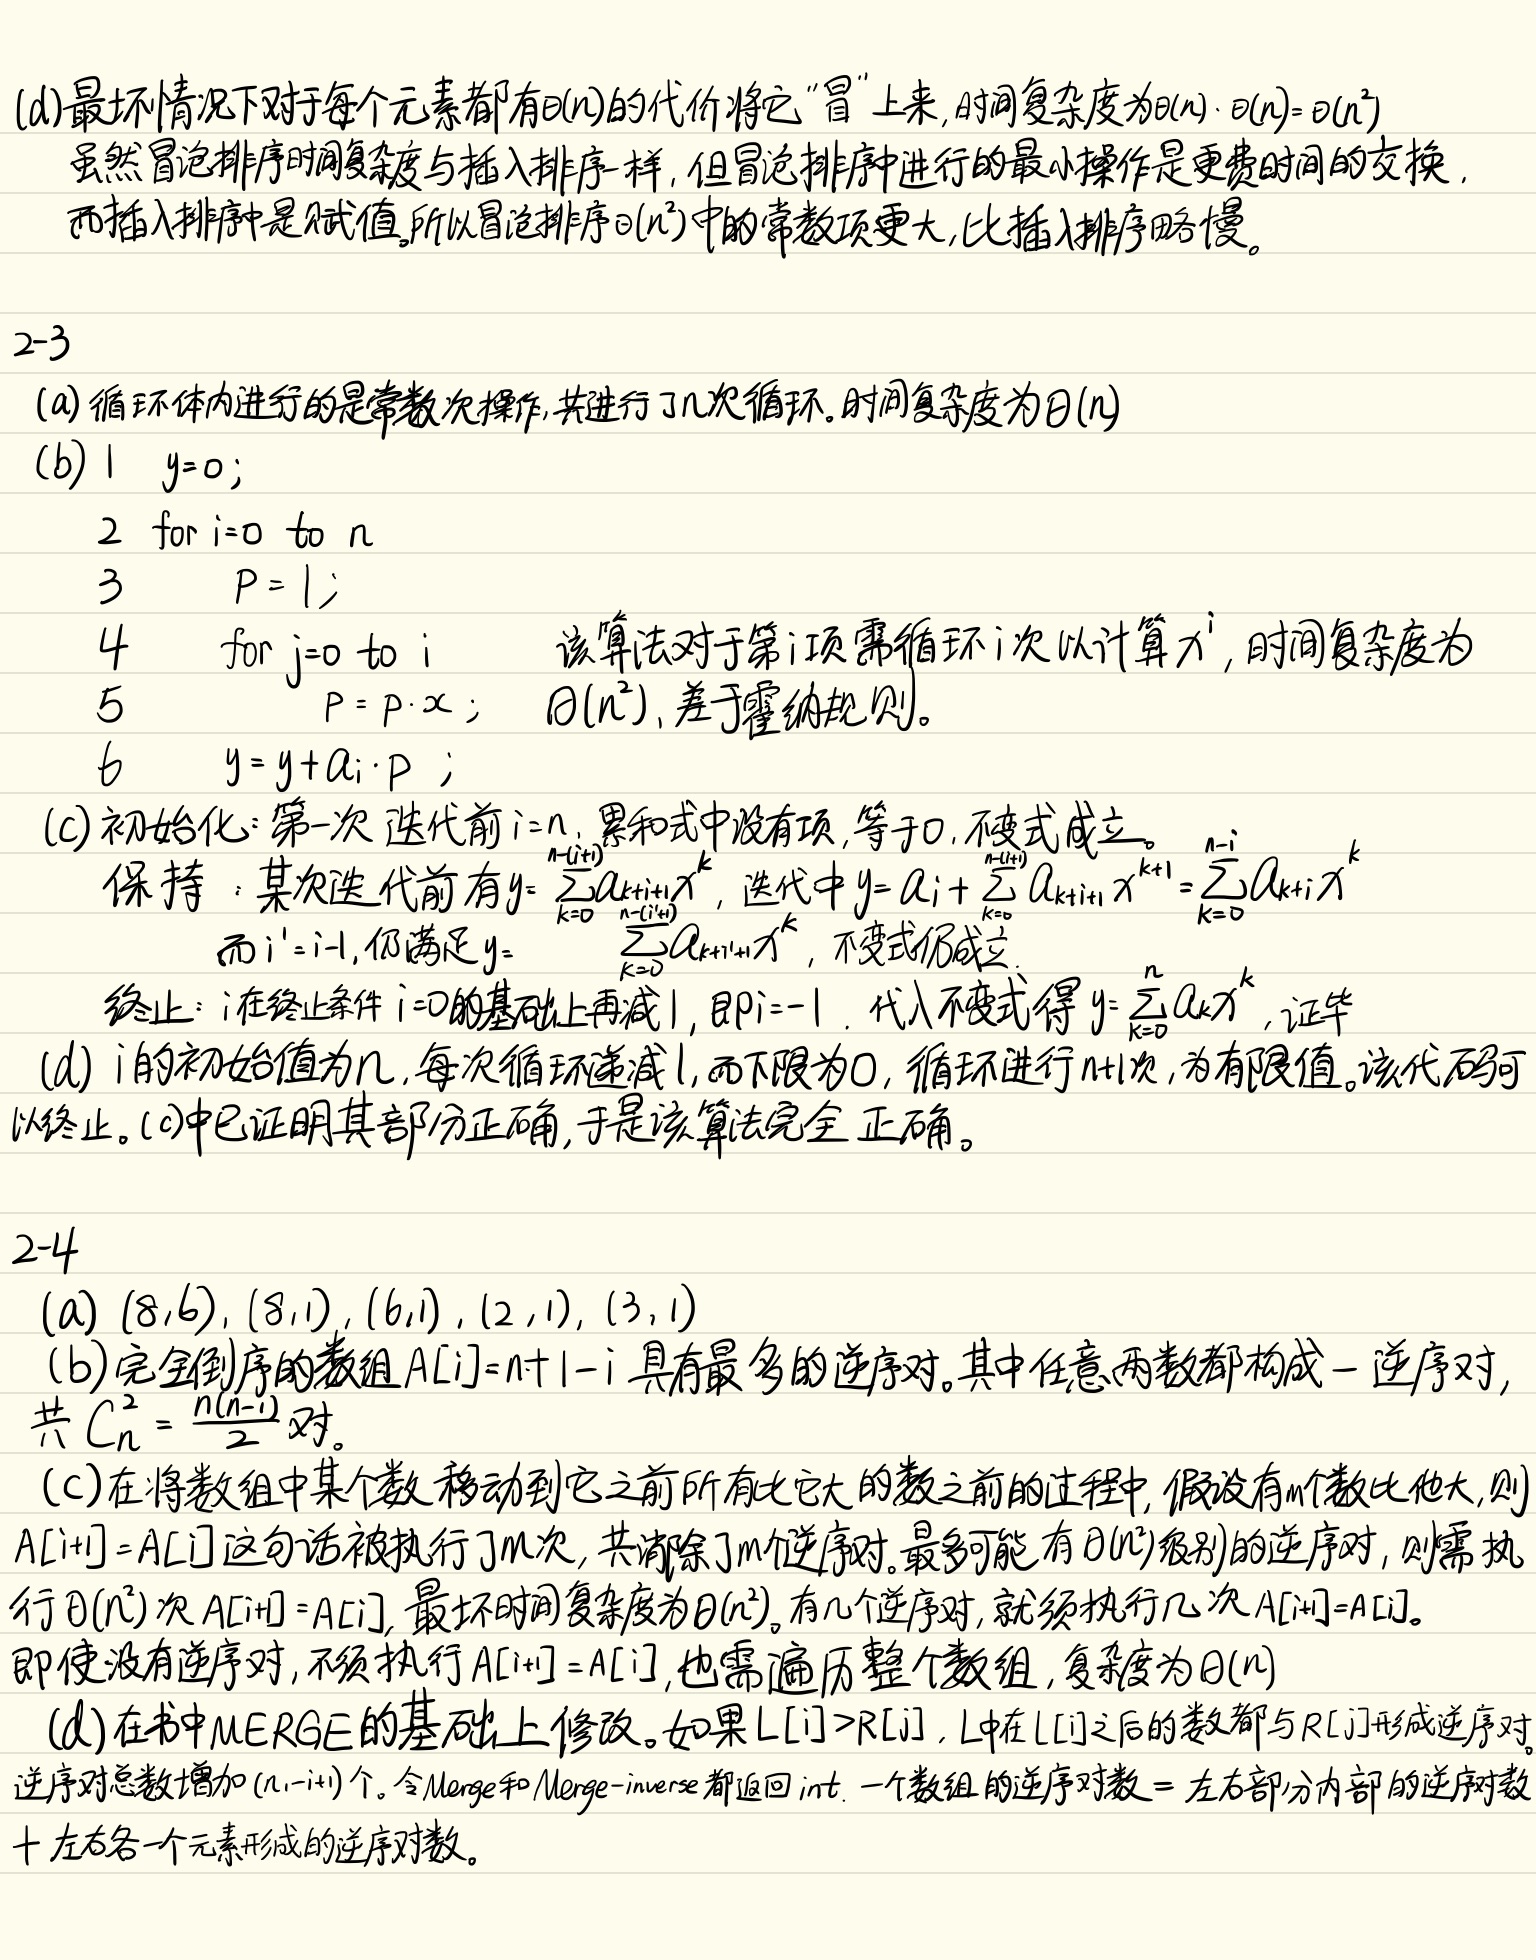 (d)最坏情况下对于每个元素都有Θ(n)的代价将它“冒”上来,时间复杂度为Θ(n)·Θ(n)=Θ(n²)
虽然冒泡排序时间复杂度与插入排序一样,但冒泡排序中进行的最小操作是更费时间的交换,
而插入排序中是赋值。所以冒泡排序Θ(n²)中的常数项更大,比插入排序略慢。
2-3
(a)循环体内进行的是常数次操作,共进行了n次循环。时间复杂度为Θ(n)
(b) 1 y=0;
2 for i=0 to n
3 P=1;
4 for j=0 to i 该算法对于第i项需循环i次以计算xⁱ,时间复杂度为
5 P=P·x; Θ(n²),差于霍纳规则。
6 y=y+aᵢ·P ;
(c)初始化:第一次迭代前i=n,累和式中没有项,等于0,不变式成立。
保持:某次迭代前有y=∑_{k=0}^{n-(i+1)} a_{k+i+1}x^k,迭代中y=a_i+∑_{k=0}^{n-(i+1)} a_{k+i+1}x^{k+1}=∑_{k=0}^{n-i} a_{k+i}x^k
而i'=i-1,仍满足y= ∑_{k=0}^{n-(i'+1)} a_{k+i'+1}x^k,不变式仍成立.
终止:i在终止条件i=0的基础上再减1,即i=-1.代入不变式得y=∑_{k=0}^{n} a_k x^k,证毕
(d) i的初始值为n,每次循环递减1,而下限为0,循环进行n+1次,为有限值。该代码可
以终止。(c)中已证明其部分正确,于是该算法完全正确。
2-4
(a) (8,6),(8,1),(6,1),(2,1),(3,1)
(b)完全倒序的数组A[i]=n+1-i具有最多的逆序对。其中任意两数都构成一逆序对,
共C_n^2=\frac{n(n-1)}{2}对。
(c)在将数组中某个数移动到它之前所有比它大的数之前的过程中,假设有m个数比他大,则
A[i+1]=A[i]这句话被执行了m次,共消除了m个逆序对。最多可能有Θ(n²)级别的逆序对,则需执
行Θ(n²)次A[i+1]=A[i],最坏时间复杂度为Θ(n²)。有几个逆序对,就须执行几次A[i+1]=A[i]。
即使没有逆序对,不须执行A[i+1]=A[i],也需遍历整个数组,复杂度为Θ(n)
(d)在书中MERGE的基础上修改。如果L[i]>R[j],L中在L[i]之后的数都与R[j]形成逆序对。
逆序对总数增加(n₁-i+1)个。令Merge和Merge-inverse都返回int.一个数组的逆序对数=左右部分内部的逆序对数
+左右各一个元素形成的逆序对数。